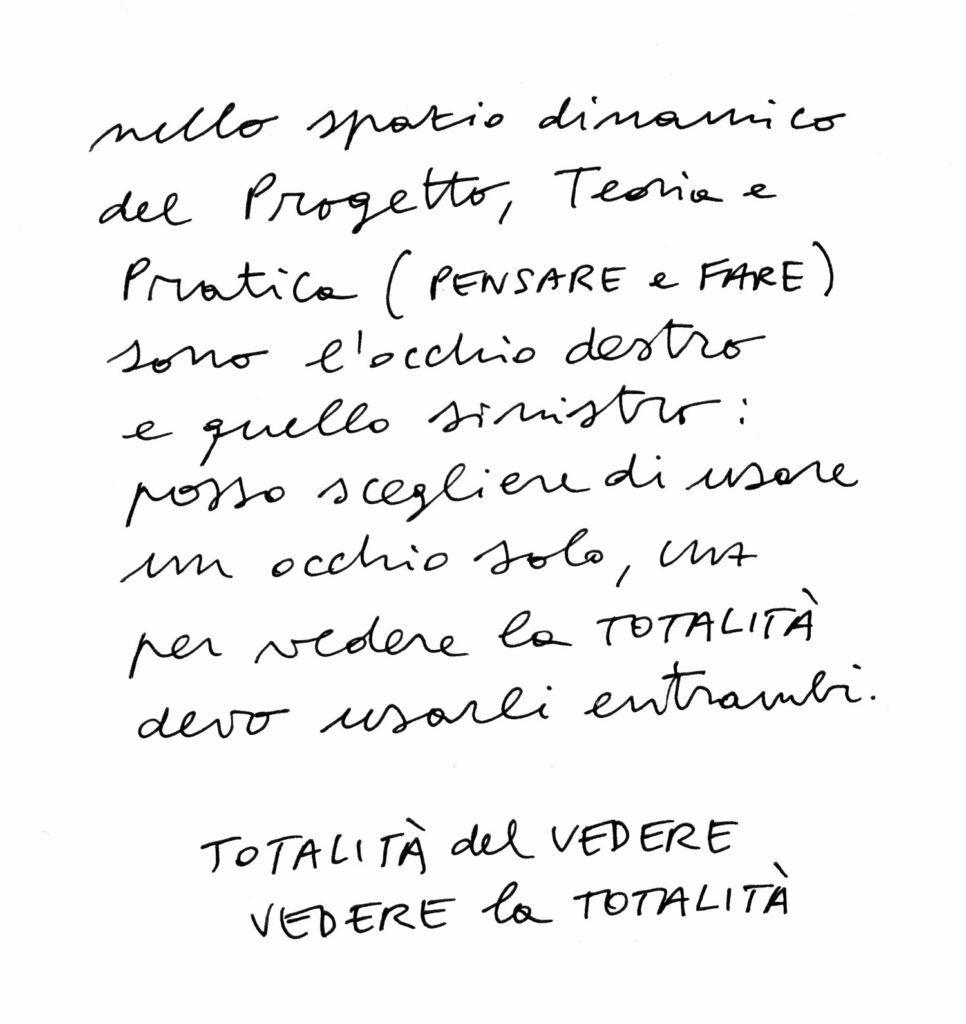 nello spazio dinamico
del Progetto, Teoria e
Pratica (PENSARE e FARE)
sono l'occhio destro
e quello sinistro:
posso scegliere di usare
un occhio solo, ma
per vedere la TOTALITÀ
devo usarli entrambi.
TOTALITÀ del VEDERE
VEDERE la TOTALITÀ